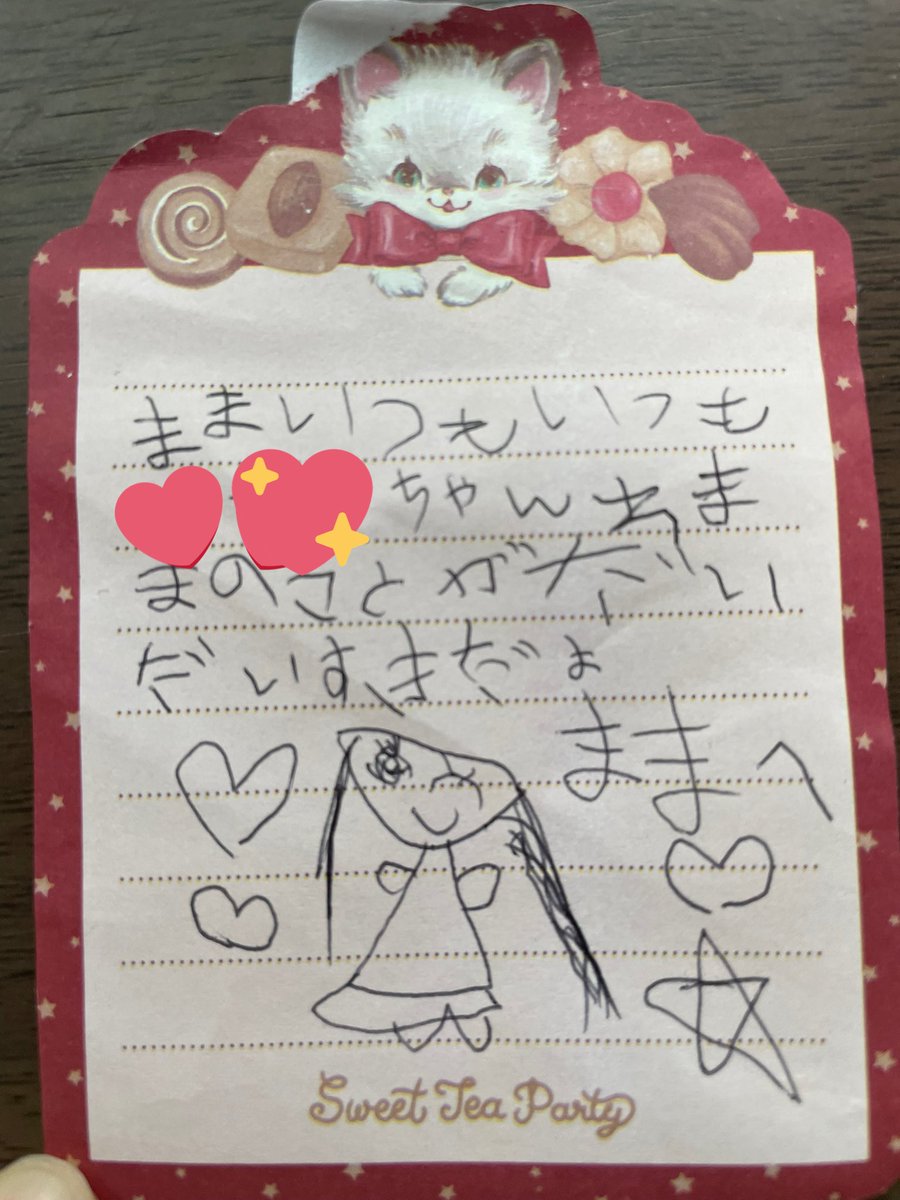 ままいつもいつも
ちゃんわま
まのことがだい
だいすきだよ
ままへ
Sweet Tea Party